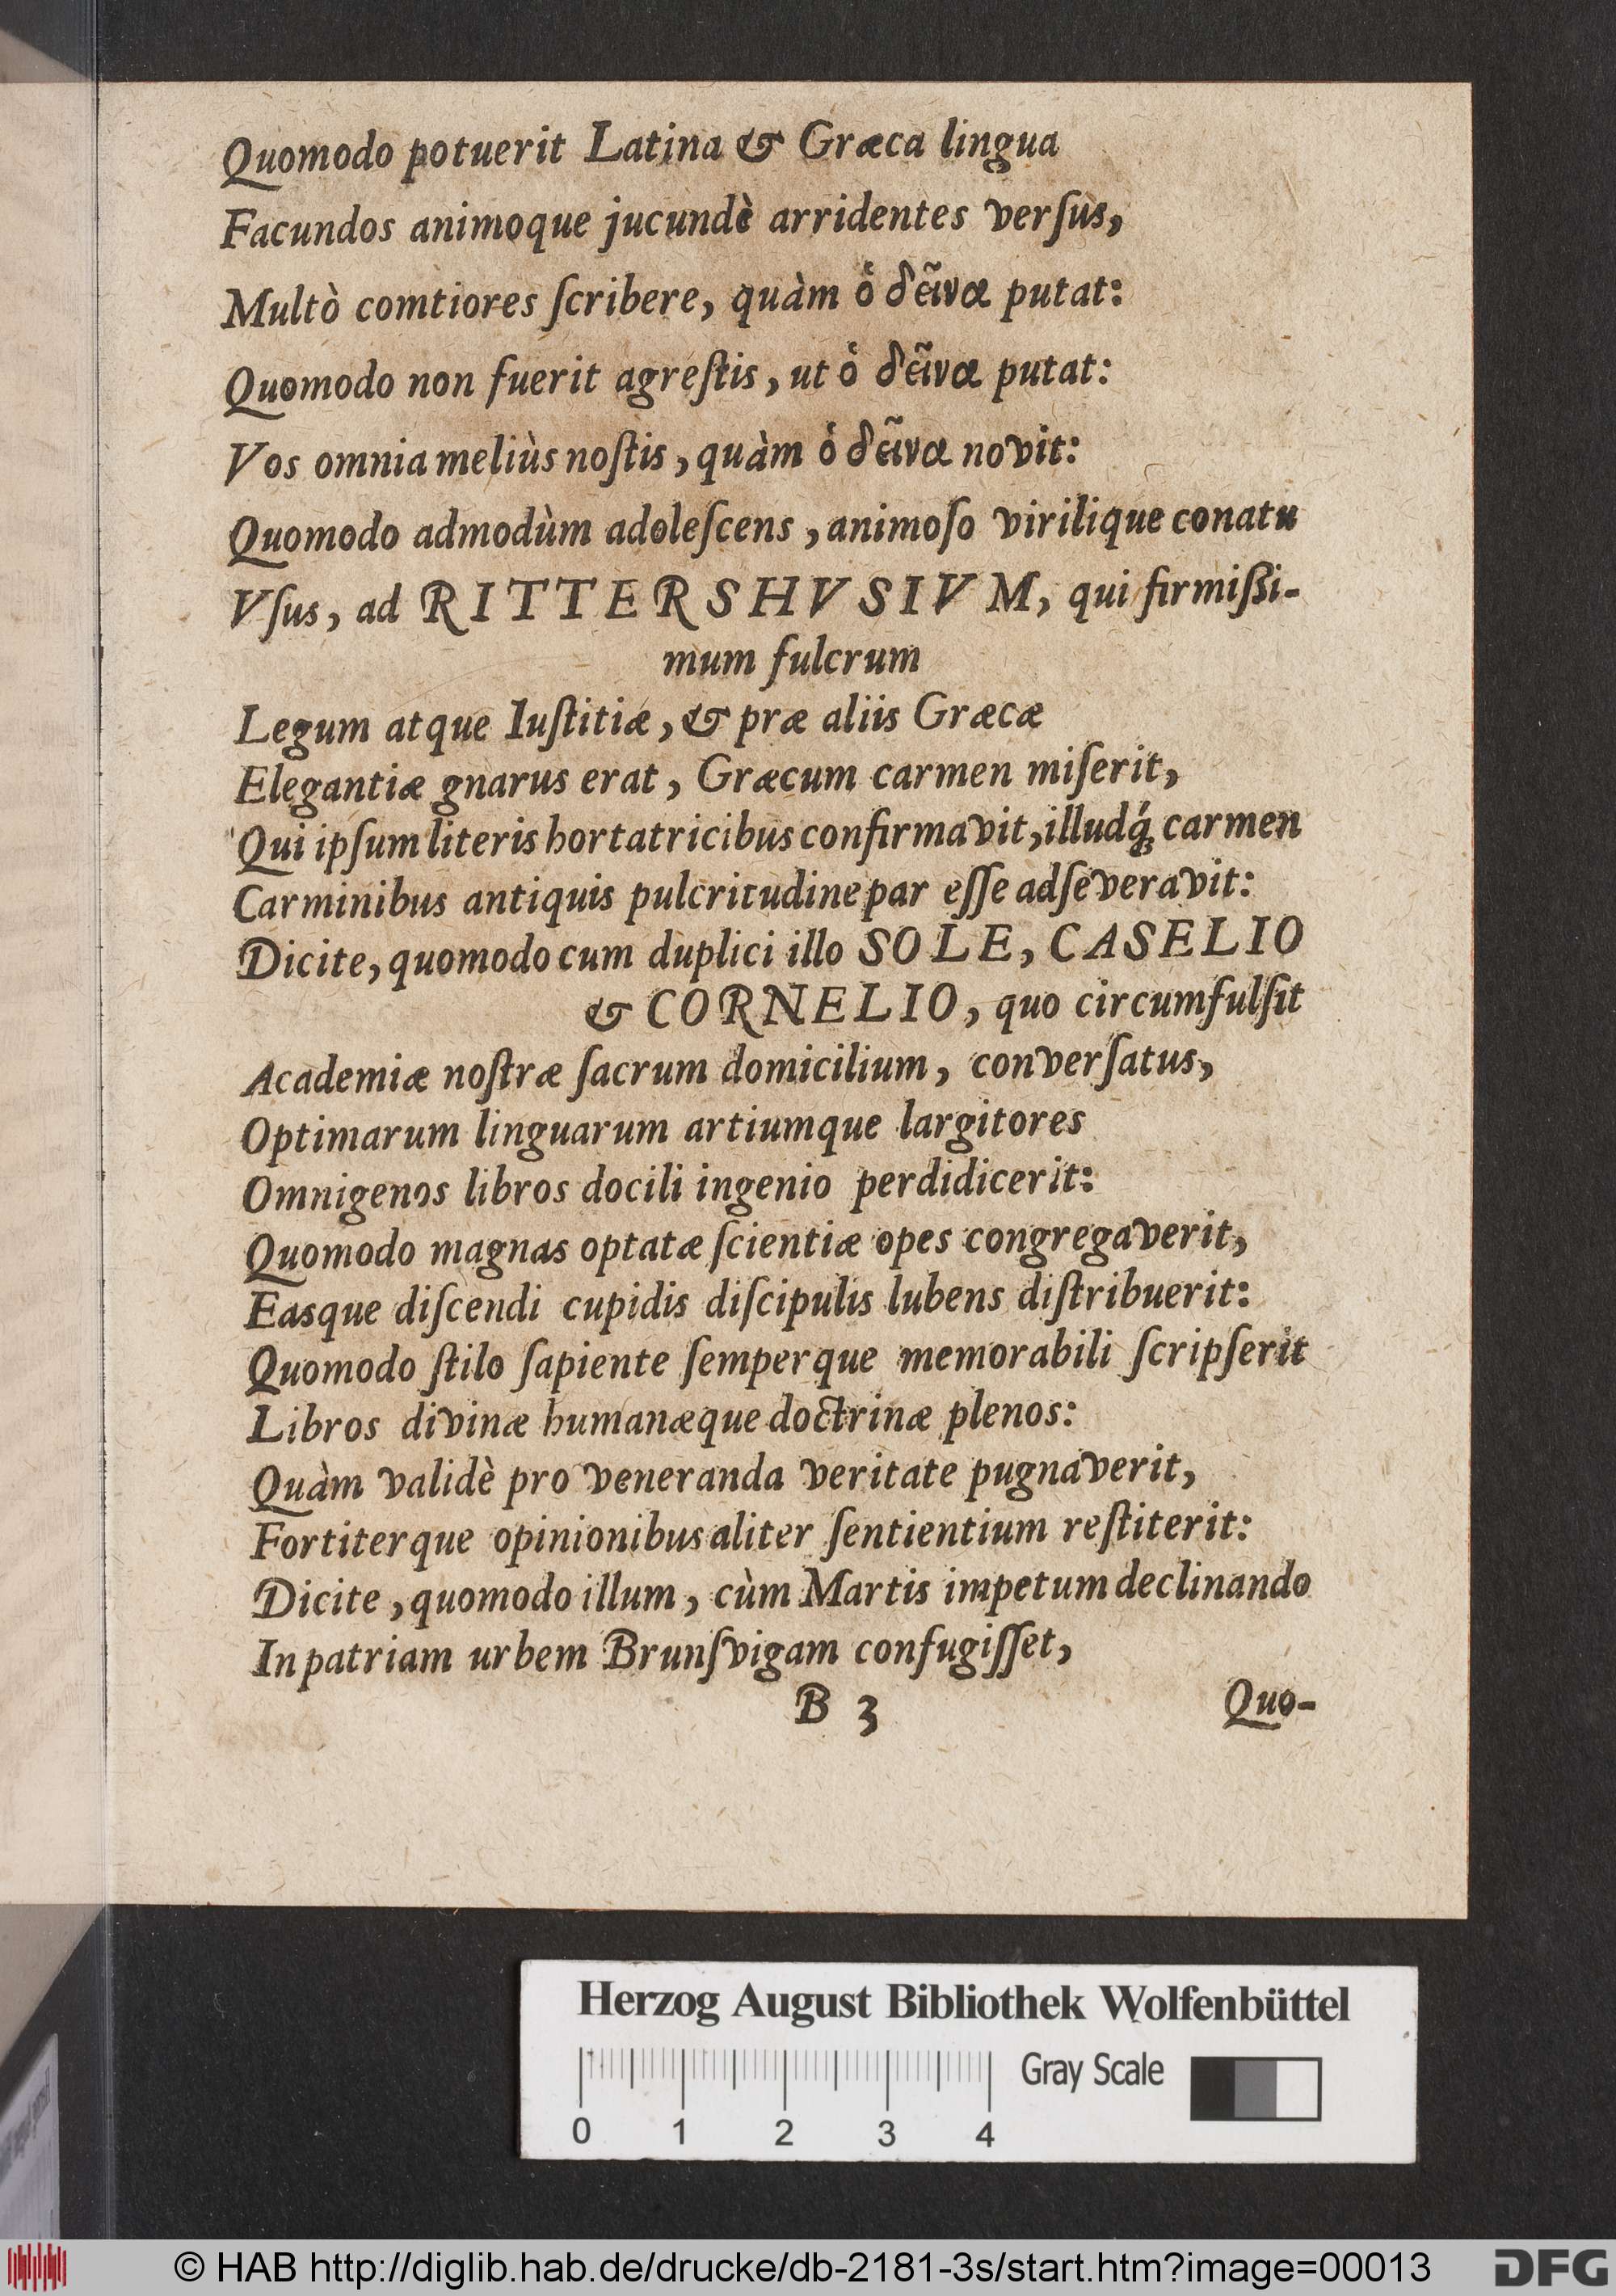 Quomodo potuerit Latina & Græca lingua
Facundos animoque jucundè arridentes verſus,
Multò comtiores ſcribere, quàm ὁ δεῖνα putat:
Quomodo non fuerit agreſtis, ut ὁ δεῖνα putat:
Vos omnia meliùs noſtis, quàm ὁ δεῖνα novit:
Quomodo admodùm adoleſcens, animoſo virilique conatu
Vſus, ad RITTERSHVSIVM, qui firmiſſi-
mum fulcrum
Legum atque Iuſtitiæ, & præ aliis Græcæ
Elegantiæ gnarus erat, Græcum carmen miſerit,
Qui ipſum literis hortatricibus confirmavit, illudq́; carmen
Carminibus antiquis pulcritudine par eſſe adſeveravit:
Dicite, quomodo cum duplici illo SOLE, CASELIO
& CORNELIO, quo circumfulſit
Academiæ noſtræ ſacrum domicilium, converſatus,
Optimarum linguarum artiumque largitores
Omnigenos libros docili ingenio perdidicerit:
Quomodo magnas optatæ ſcientiæ opes congregaverit,
Easque diſcendi cupidis diſcipulis lubens diſtribuerit:
Quomodo ſtilo ſapiente ſemperque memorabili ſcripſerit
Libros divinæ humanæque doctrinæ plenos:
Quàm validè pro veneranda veritate pugnaverit,
Fortiterque opinionibus aliter ſentientium reſtiterit:
Dicite, quomodo illum, cùm Martis impetum declinando
In patriam urbem Brunſvigam confugiſſet,
B 3 Quo-
Herzog August Bibliothek Wolfenbüttel
Gray Scale
0 1 2 3 4
© HAB http://diglib.hab.de/drucke/db-2181-3s/start.htm?image=00013
DFG